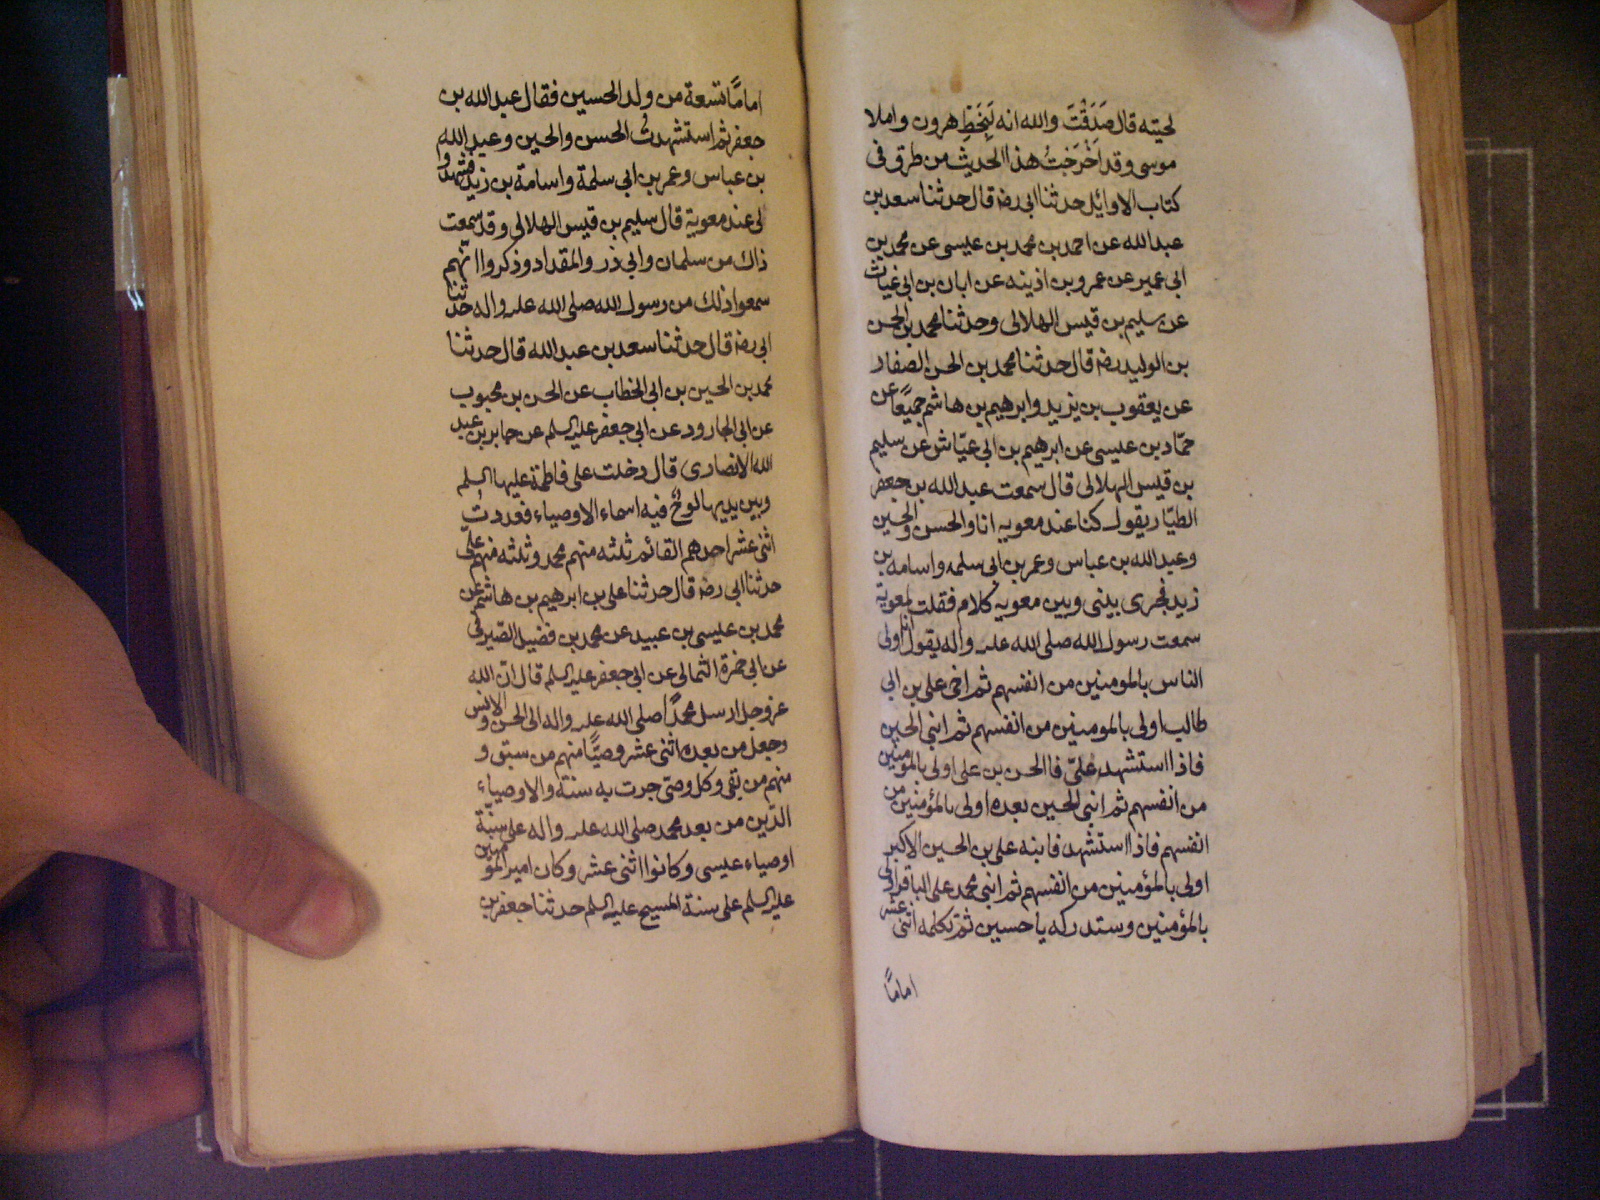 لحيته قال صَدَقْتَ والله انه لَبِخَطِ هرون واملا
موسى وقد اَخْرَجْتُ هذا الحديث من طرق فى
كتاب الاوائل حدثنا ابى رضه قال حدثنا سعد بن
عبد الله عن احمد بن محمد بن عيسى عن محمد بن
ابى عمير عن عمرو بن اذينه عن ابان بن ابى غياث
عن سليم بن قيس الهلالى وحدثنا محمد بن الحسن
بن الوليد رضه قال حدثنا محمد بن الحسن الصفار
عن يعقوب بن يزيد وابرهيم بن هاشم جميعًا عن
حمّاد بن عيسى عن ابرهيم بن ابى عيّاش عن سليم
بن قيس الهلالى قال سمعت عبد الله بن جعفر
الطيّار يقول كنا عند معويه انا والحسن والحسين
وعبد الله بن عباس وعمر بن ابى سلمه واسامه بن
زيد فجرى بينى وبين معويه كلام فقلت لمعوية
سمعت رسول الله صلى الله عليه واله يقول انا اولى
الناس بالمومنين من انفسهم ثم اخى على بن ابى
طالب اولى بالمومنين من انفسهم ثم ابنى الحسين
فاذا استشهد علىّ فالحسن بن على اولى بالمؤمنين
من انفسهم ثم ابنى الحسين بعده اولى بالمؤمنين من
انفسهم فاذا استشهد فابنه على بن الحسين الاكبر
اولى بالمؤمنين من انفسهم ثم ابنى محمد على الباقر اولى
بالمؤمنين وستدركه يا حسين ثمّ تكلمه اثنى عشر
امامًا
امامًا تسعة من ولد الحسين فقال عبد الله بن
جعفر ثم استشهدتُ الحسن والحسين وعبد الله
بن عباس وعمر بن ابي سلمة واسامة بن زيد فشهدوا
لى عند معوية قال سليم بن قيس الهلالى وقد سمعت
ذاك من سلمان وابى ذر والمقداد وذكروا انّهم
سمعوا ذلك من رسول الله صلى الله عليه واله حدثنا
ابى رضه قال حدثنا سعد بن عبد الله قال حدثنا
محمد بن الحسين بن ابى الخطاب عن الحسن بن محبوب
عن ابى الجارود عن ابى جعفر عليه السلم عن جابر بن عبد
الله الانصارى قال دخلت على فاطمة عليها السلم
وبين يديها لوحٌ فيه اسماء الاوصياء فعددتُ
اثنى عشر احدهم القائم ثلثه منهم محمد وثلثه منهم على
حدثنا ابى رضه قال حدثنا على بن ابرهيم بن هاشم عن
محمد بن عيسى بن عبيد عن محمد بن فضيل الصيرفى
عن ابى حمزة الثمالى عن ابى جعفر عليه السلم قال انّ الله
عز وجل ارسل محمدًا صلى الله عليه واله الى الجن والانس
وجعل من بعده اثنى عشر وصيًّا منهم من سبق و
منهم من بقى وكل وصىّ جرت به سنة والاوصياء
الذين من بعد محمد صلى الله عليه واله على سنّة
اوصياء عيسى وكانوا اثنى عشر وكان امير المؤمنين
عليه السلم على سنة المسيح عليه السلم حدثنا جعفر بن